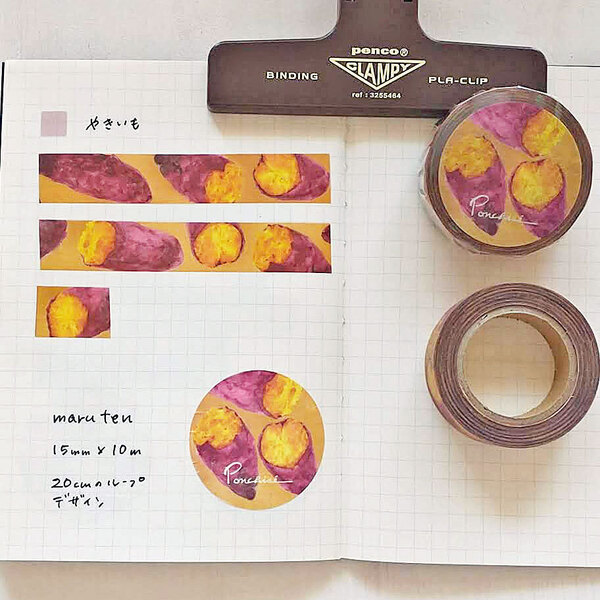 penco®
CLAMPY
BINDING
PLA-CLIP
ref : 3255464
やきいも
Ponchise
maru ten
15mm × 10m
20cmのループ
デザイン
Ponchise